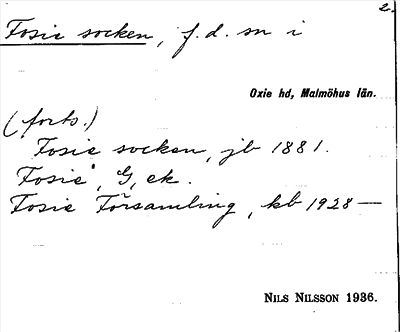 2.
Fosie socken, f.d. sn i
Oxie hd, Malmöhus län.
(forts.)
Fosie socken, jb 1881.
"Fosie", G, ek.
Fosie Församling, kb 1928 —
NILS NILSSON 1936.